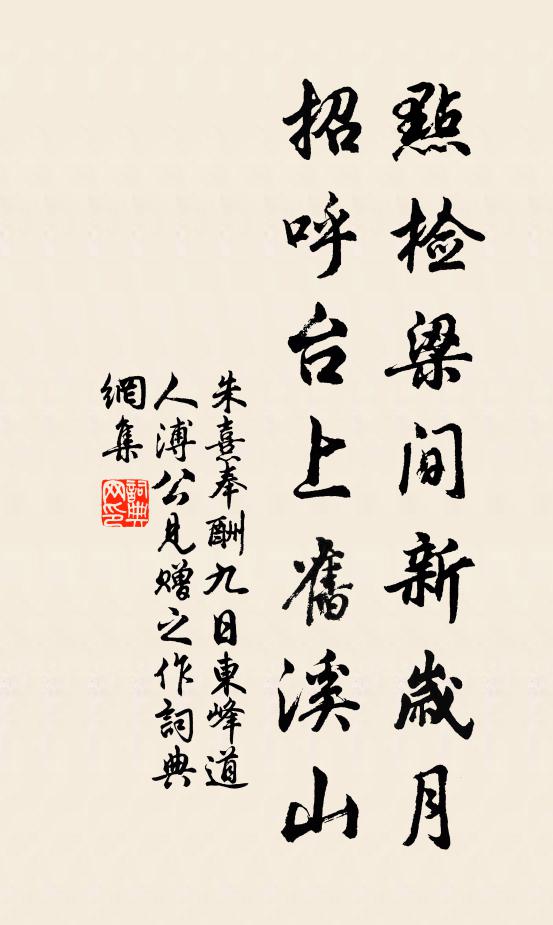 點檢梁間新歲月
招呼台上舊溪山
朱熹奉酬九日東峰道
人溥公見贈之作詞典
網集
詞典
网印